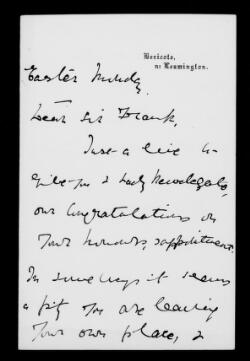 Bericote,
nr Leamington.
Easter Monday.
Dear Sir Frank,
Just a line to
give you & Lady Newdegate,
our congratulations on
your honours, appointment.
In some ways it seems
a pity you are leaving
your own place, &